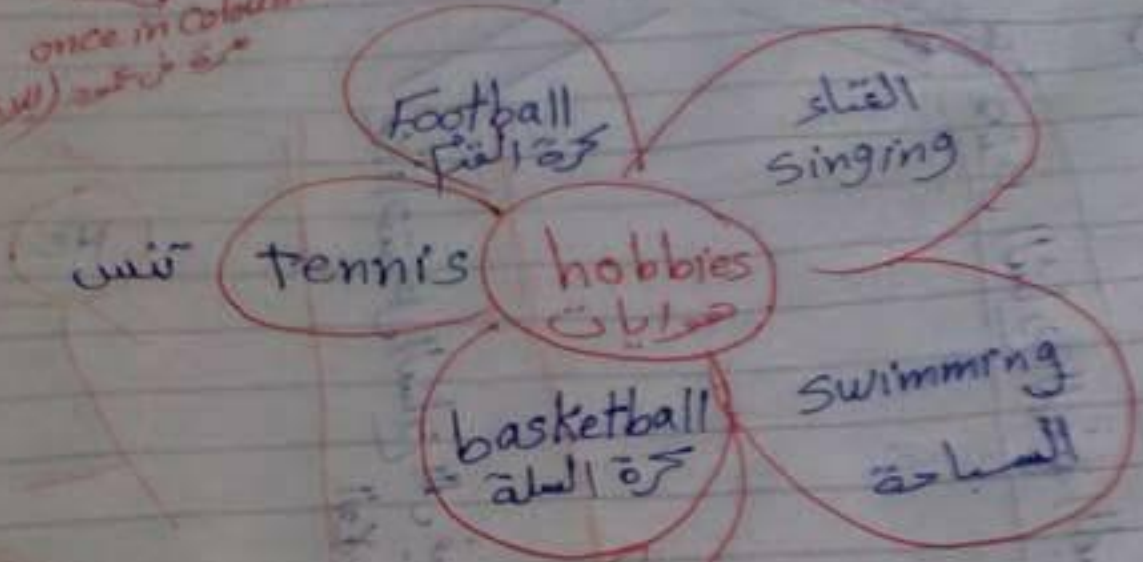 once in
Football
كرة القدم
الغناء
singing
تنس
tennis
hobbies
هوايات
basketball
كرة السلة
swimming
السباحة